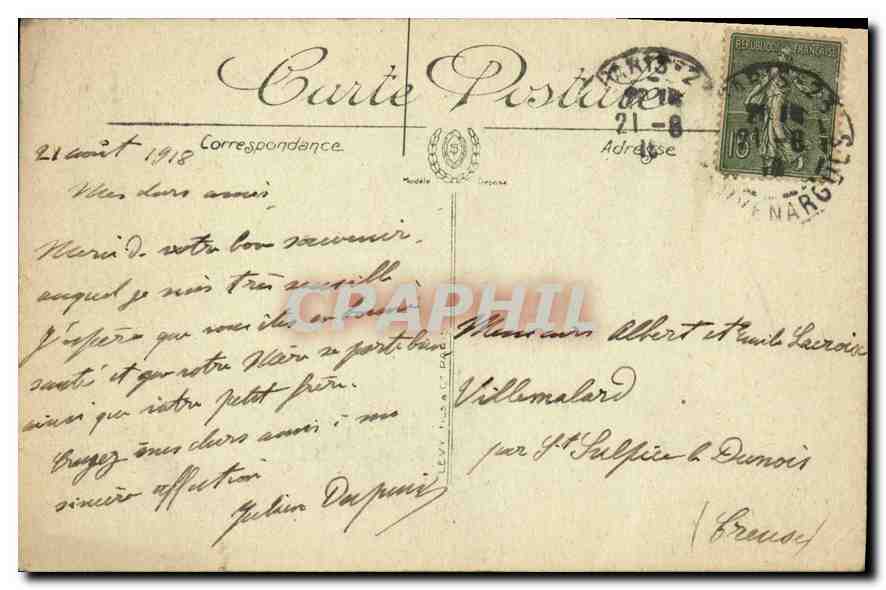 Carte Postale
Correspondance
Adresse
Modèle Déposé
S
REPUBLIQUE FRANÇAISE
15
PARIS - 2
21 - 8
PARIS - 23
21 8
18
VAUVENARGUES
21 août 1918
Mes chers amis,
Merci de votre bon souvenir
auquel je suis très sensible
J'espère que vous êtes en bonne
santé et que votre Mère se porte bien
ainsi que votre petit frère.
Croyez mes chers amis à ma
sincère affection
Julien Dupuis
LEVY FILS & Cie PARIS
Messieurs Albert et Emile Lacroix
Villemalard
par St Sulpice le Dunois
(Creuse)
CPAPHIL